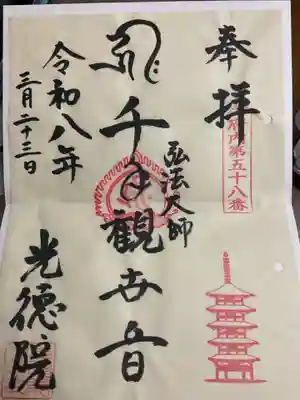 奉拝
府内第五十八番
弘法大師
千手観世音
令和八年
三月二十三日
光德院